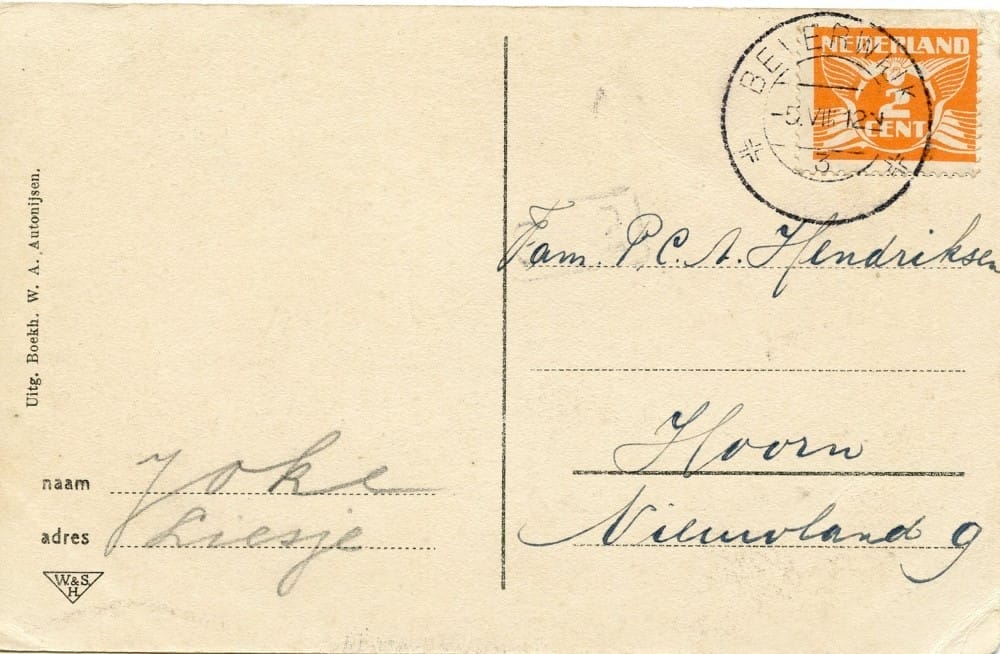 NEDERLAND
2
CENT
BEVERWIJK
-5.VII. 12N
3
Uitg. Boekh. W. A. Autonijsen.
Fam. P. C. A. Hendriksen
Hoorn
Nieuwland 9
naam Joke
adres Liesje
W.&S.
H